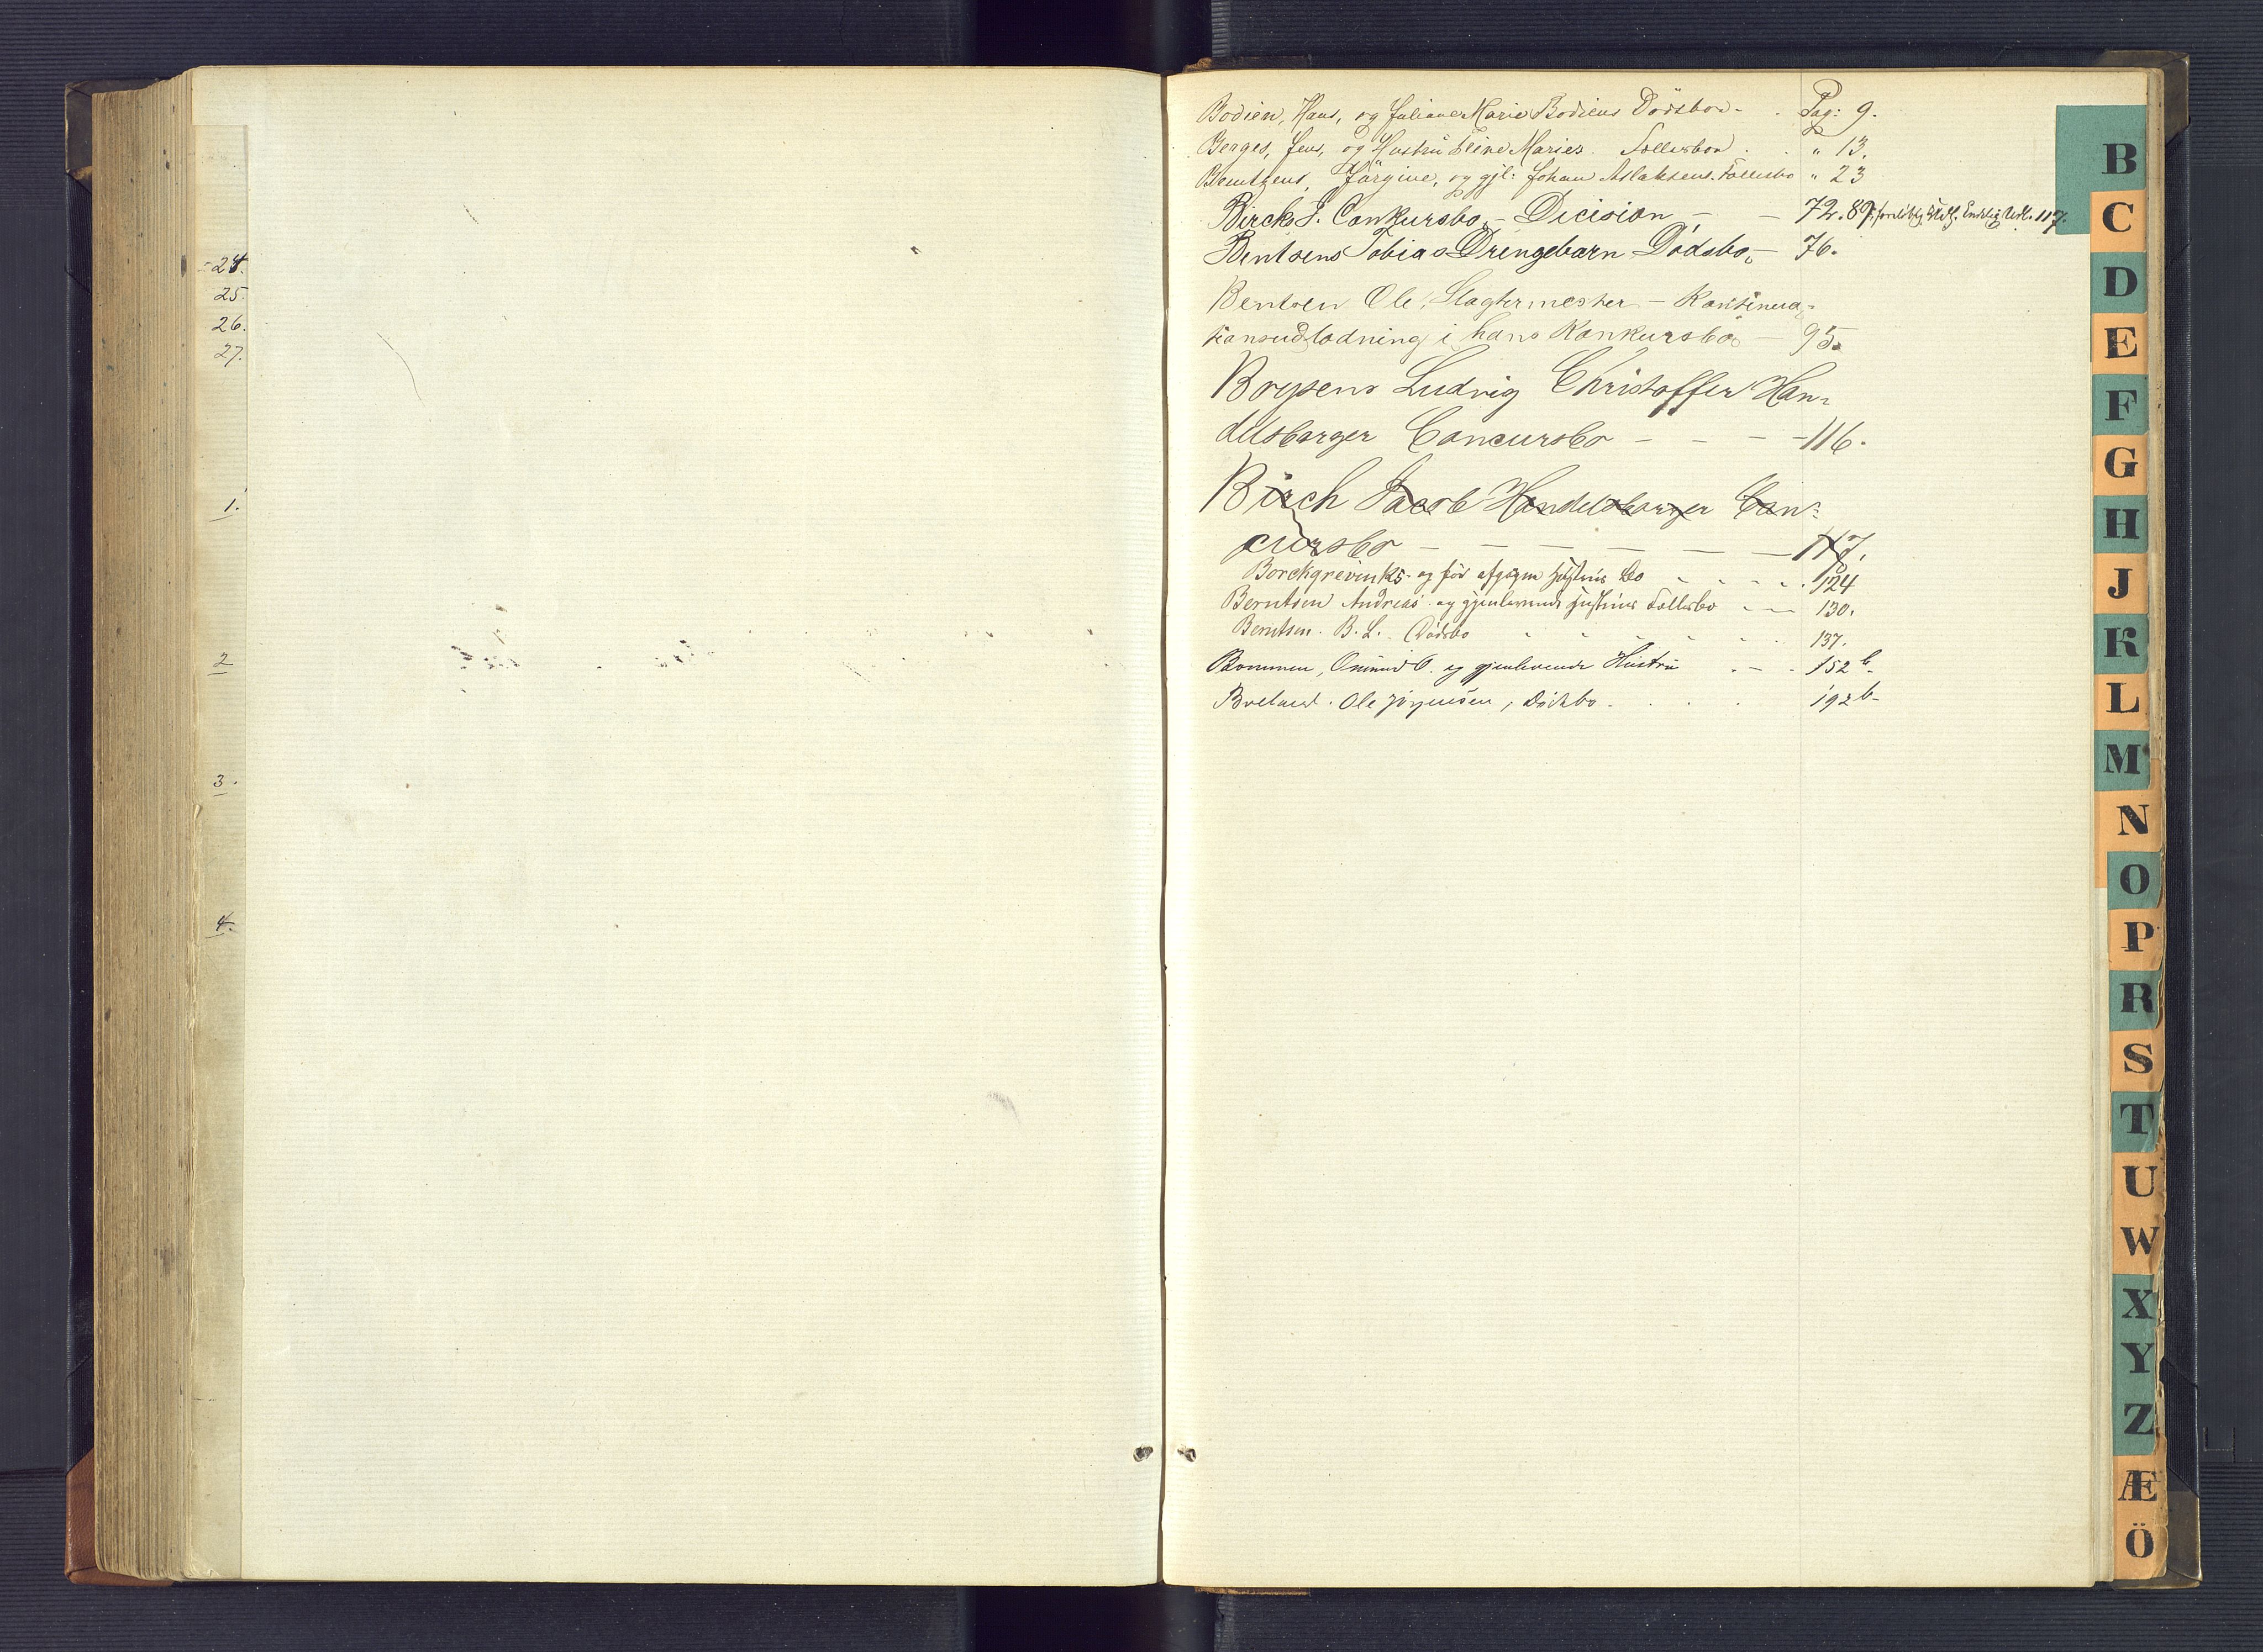 24.
25.
26.
27.
1.
2
3.
4.
Bodien, Hans, og Juliane Marie Bodiens Dödsbo - . Pag: 9.
Berges, Jens, og Hustru Eline Maries Fællesbo . . " 13.
Berntzens, Jörgine, og gjl: Johan Aslaksens Fællesbo " 23
Birch J. Conkursbo, - Dicision - - 72. 89, foreløbig Udl. Endelig Udl. 117.
Bentsens Tobias Drengebarn Dødsbo, - 76.
Bentsen Ole, Slagtermester - Kontinua-
tionsudlodning i hans Konkursbo - 95.
Boysens Ludvig Christoffer Han-
delsborger Concursbo - - - - 116.
Birch Jacob Handelsborger Con-
cursbo - - - - - - 117.
Borchgrevinks og før afgagne Hustrus Bo - - - - 124
Berntsen Andreas og gjenlevende Hustrus Fællesbo - - - 130.
Berntsen. B. L. Dødsbo - - - - - - 137.
Bommen, Omund O. og gjenlevende Hustru . - - 152 b.
Breland. Ole Jörgensen, Dödsbo . . . . 192 b-
B
C
D
E
F
G
H
J
K
L
M
N
O
P
R
S
T
U
W
X
Y
Z
Æ
Ö